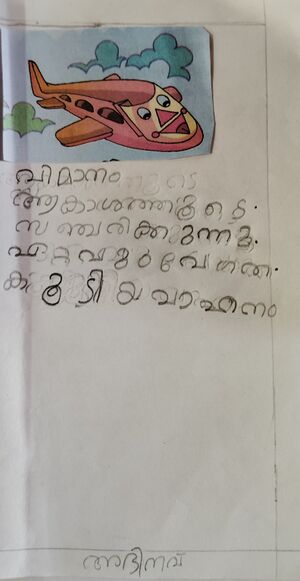 വിമാനം
ആകാശത്തുകൂടെ.
സഞ്ചരിക്കുന്നു.
ഏറ്റവും വേഗത.
കൂടിയ വാഹനം
അഭിനവ്